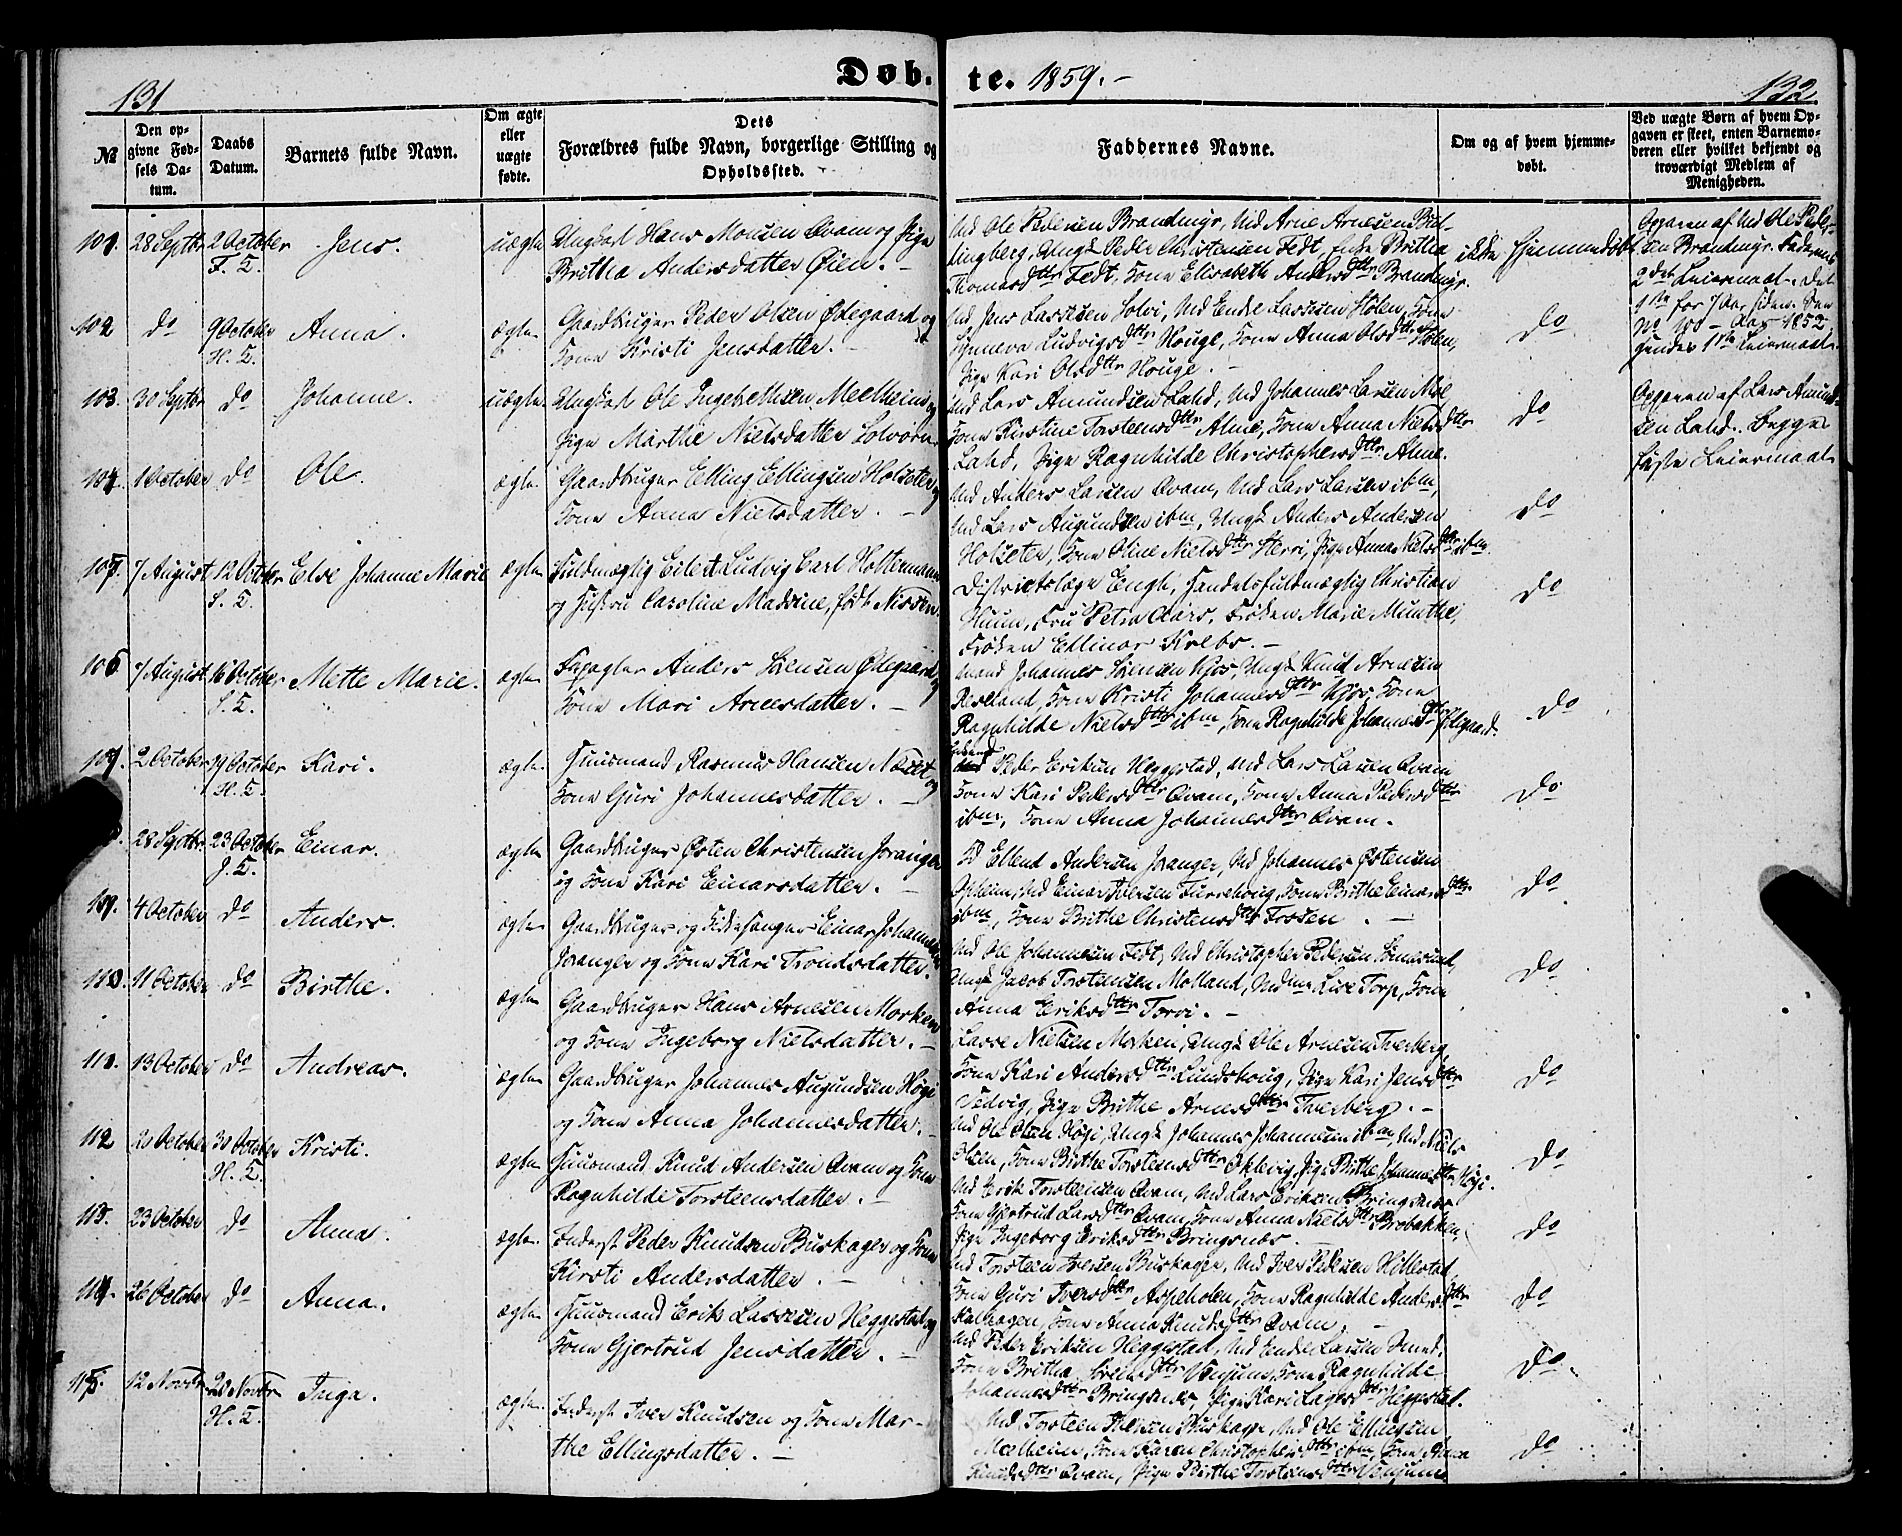 131
Døb.
te. 1859.-
132
№
Den op-
givne Fød-
sels Da-
tum.
Daabs
Datum.
Barnets fulde Navn.
Om ægte
eller
uægte
fødte.
Dets
Forældres fulde Navn, borgerlige Stilling og
Opholdssted.
Faddernes Navne.
Om og af hvem hjemme-
døbt.
Ved uægte Børn af hvem Op-
gaven er skeet, enten Barnemo-
deren eller hvilket bekjendt og
troværdigt Medlem af
Menigheden.
101. 28 Septbr 2 October Jens. uægte Ungkarl Hans Monsen Qvam og Pige
F. K.
Brittha Andersdatter Øien. -
Md Ole Pedersen Brandmyr, Md Arne Arnesen
lingberg, Ungk Peder Christensen Fedt, Enke Brittha
Thomasdttr Fedt, Kone Elisabeth Andersdttr Brandmyr.
ikke hjemmedøbt
Opgaven af Md Ole Peder-
sen Brandmyr. Faderens
2det Leiermaal. Det
1ste for 7 Aar siden.
No 100 - Aar 1852.
1ste Leiermaal.
102 do 9 October Anna. ægte Gaardbruger Peder Olsen Ødegaard og
H. K.
Kone Kristi Jensdatter. -
Md Jens Lassesen Solvi, Md Endre Lassesen Holen, Kone
Synneva Ludvigsdttr Houge, Kone Anna Olsdttr Holen,
Pige Kari Olsdttr Houge. -
do
103. 30 Septbr do Johanne. uægte Ungkarl Ole Ingebrethsen Melheim og
Pige Marthe Nielsdatter Solvorn.
Md Lars Amundsen Lahd, Md Johannes Larsen Moe
Kone Kirstine Torsteensdttr Alme, Kone Anna Nielsdttr
Lahd, Pige Ragnhilde Christophersdttr Alme.
do
Opgaven af Lars Amund-
sen Lahd. Begges
første Leiermaal.
104. 1 October do Ole. ægte Gaardbruger Elling Ellingsen Holseter og
Kone Anna Nielsdatter. -
Md Anders Larsen Qvam, Md Lars Larsen ibm,
Md Lars Augundsen ibm, Ungk Anders Andersen
Holseter, Kone Oline Nielsdttr Herri, Pige Anna Nielsdttr ibm
do
105. 7 August 12 October Else Johanne Marie ægte Fuldmægtig Eilert Ludvig Carl Holtermann
S. K.
og Hustru Caroline Madsine, født Nissen.
Districtslæge Engh, Handelsfuldmægtig Christian
Huun, Fru Petra Aars, Frøken Marie Munthe,
Frøken Ellinor Krebs. -
do
106 7 August 16 October Mette Marie. ægte Anders Sørensen Ødegaard og
S. K.
Kone Mari Arnesdatter. -
Mand Johannes Sørensen Kjos, Ungk Knud Arnesen
Røslland, Kone Kristi Johannesdttr Kjos, Kone
Ragnhilde Nielsdttr ibm, Kone Ragnhilde Johannesdttr Ødegaard.
do
107. 2 October 19 October Kari. ægte Huusmand Rasmus Hansen Næset og
H. K.
Kone Guri Johannesdatter. -
Peder Eriksen Heggestad, Md Lars Larsen Qvam
Kone Kari Pedersdttr Qvam, Kone Anna Pedersdttr
ibm, Kone Anna Johannesdttr Qvam.
do
28 Septbr. 23 October Einar. ægte Gaardbruger Østen Christensen Joranger
J. K.
og Kone Kari Einarsdatter. -
Ellend Andersen Joranger, Md Johannes Østensen
Opheim, Md Einar Iversen Furrehoug, Kone Brithe Einarsdttr
ibm, Kone Brithe Christensdttr Fossen. -
do
109. 4 October do Anders. ægte Gaardbruger og Kirkesanger Einar Johannesen
Joranger og Kone Kari Trondsdatter.
Md Ole Johannesen Fedt, Md Christopher Pedersen
Ungk Jacob Torstensen Molland, Lise Torp, Kone
Anna Eriksdttr Torvi. -
do
110. 11 October do Birthe. ægte Gaardbruger Hans Arnesen Morken
og Kone Ingeborg Nielsdatter. -
Lasse Nielsen Morken, Ungk Ole Arnesen Tverberg
Kone Kari Andersdttr Lundshoug, Pige Kari Jensdttr
Tedvig, Pige Brithe Arnesdttr Tverberg. -
do
111. 13 October do Andreas. ægte Gaardbruger Johannes Augundsen Høgi
og Kone Anna Johannesdatter. -
Md Ole Olsen Høgi, Ungk Johannes Johannesen ibm, Md Niels
Olsen, Kone Birthe Torsteensdttr Oklevig, Pige Birthe Johannesdttr Høgi.
do
112 20 October 30 October Kristi. ægte Huusmand Knud Andersen Qvam og Kone
H. K.
Ragnhilde Torsteensdatter. -
Md Erik Torsteensen Qvam, Md Lars Eriksen Bringsnæs
Kone Gjertrud Larsdttr Qvam, Kone Anna Nielsdttr Brobakken,
Pige Ingeborg Eriksdttr Bringsnæs. -
do
113. 23 October do Anna. ægte Inderst Peder Knudsen Buskager og Kone
Kirsti Andersdatter. -
Md Torsteen Iversen Buskager, Md Iver Pedersen Hillestad
Kone Guri Iversdttr Aspeholen, Kone Ragnhilde Andersdttr
Kalhagen, Kone Anna Knudsdttr Qvam. -
do
114. 26 October do Anna. ægte Huusmand Erik Lassesen Heggestad og
Kone Gjertrud Jensdatter. -
Md Peder Eriksen Heggestad, Md Endre Larsen
Kone Brittha Venjum, Kone Ragnhilde
Johannesdttr Bringsnæs, Pige Kari Heggestad.
do
115. 12 Novbr 20 Novbr Inga. ægte Inderst Iver Knudsen og Kone Mar-
H. K.
the Ellingsdatter. -
Md Torsteen Iversen Buskager, Md Ole Ellingsen
Melheim, Kone Karen Christophersdttr ibm, Kone Anna
Knudsdttr Qvam, Pige Birthe Torsteensdttr Venjum
do